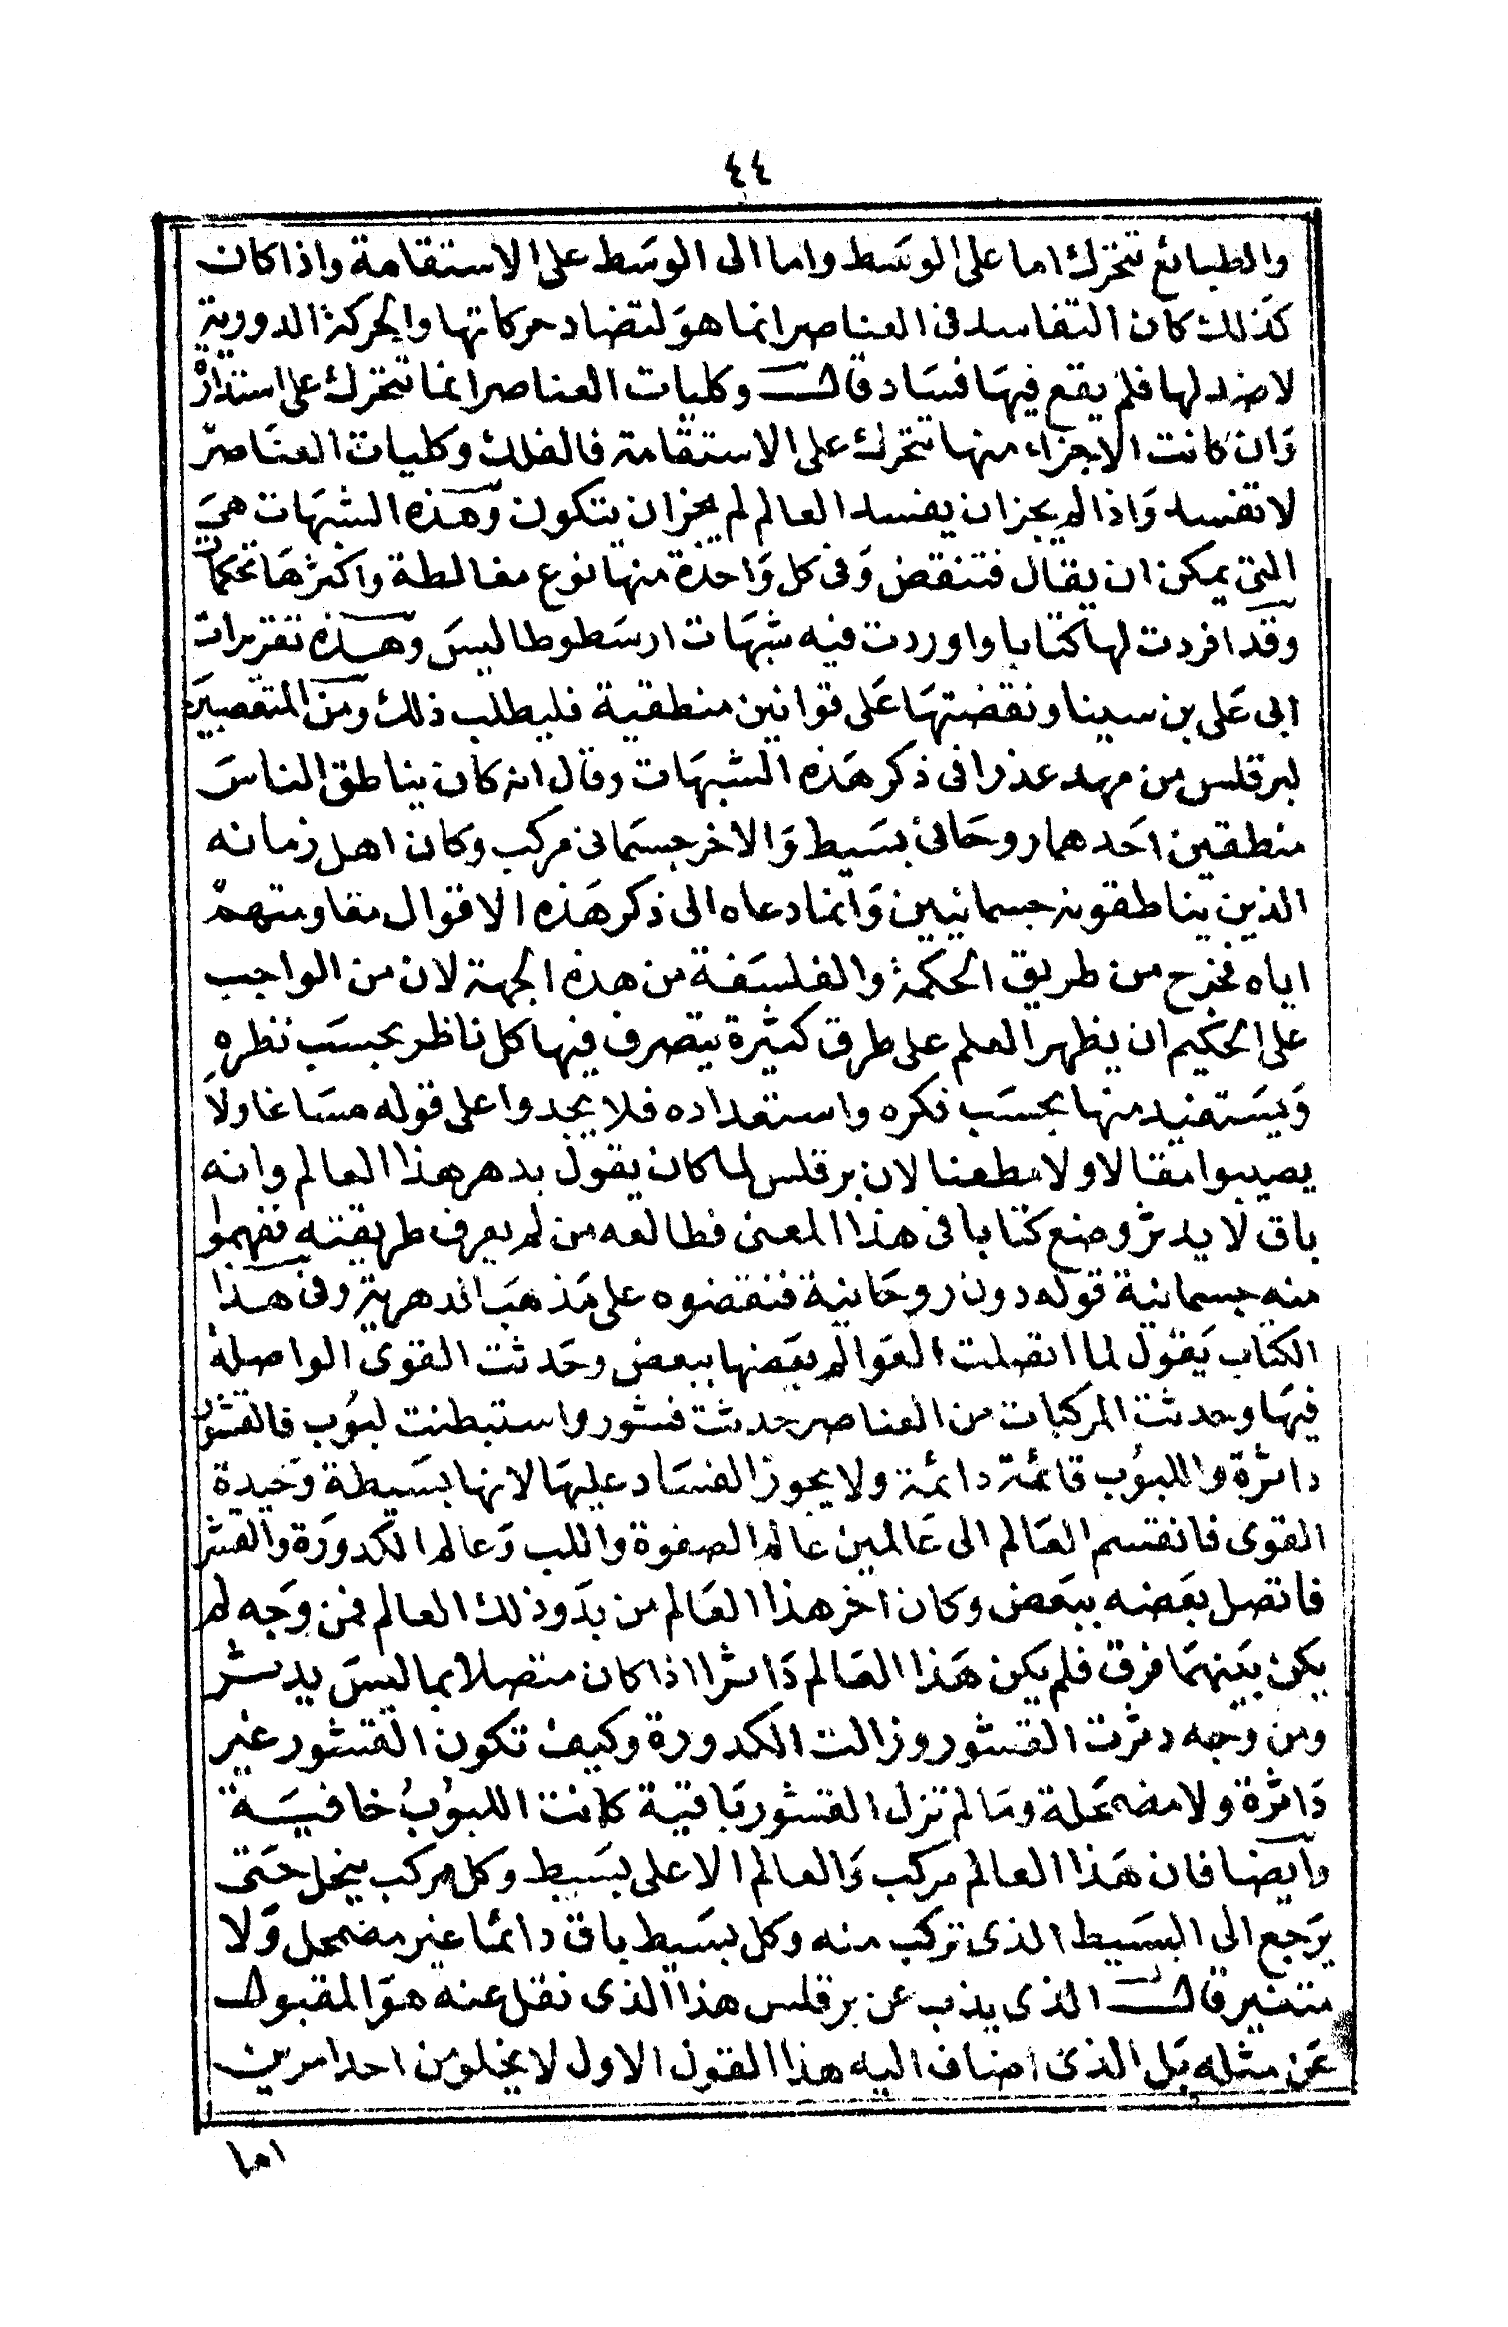 ٤٤
والطبائع تتحرك اما على الوسط واما الى الوسط على الاستقامة واذا كان
كذلك كان التفاسد فى العناصر انما هو لتضاد حركاتها والحركة الدورية
لا ضد لها فلم يقع فيها فساد قال وكليات العناصر انما تتحرك على استدارة
وان كانت الاجزاء منها تتحرك على الاستقامة فالفلك وكليات العناصر
لا تفسد واذا لم يجز ان يفسد العالم لم يجز ان يتكون وهذه الشبهات هى
التى يمكن ان يقال فتنقض وفى كل واحدة منها نوع مغالطة واكثرها تحكمات
وقد افردت لها كتابا واوردت فيه شبهات ارسطوطاليس وهذه تقريرات
ابى على بن سينا ونقضتها على قوانين منطقية فليطلب ذلك ومن المتعصبين
لبرقلس من مهد عذرا فى ذكر هذه الشبهات وقال انه كان يناطق الناس
منطقين احدهما روحانى بسيط والاخر جسمانى مركب وكان اهل زمانه
الذين يناطقونه جسمانيين وانما دعاه الى ذكر هذه الاقوال مقاومتهم
اياه فخرج من طريق الحكمة والفلسفة من هذه الجهة لان من الواجب
على الحكيم ان يظهر العلم على طرق كثيرة يتصرف فيها كل ناظر بحسب نظره
ويستفيد منها بحسب فكره واستعداده فلا يجدوا على قوله مساغا ولا
يصيبوا مقالا ولا مطعنا لان برقلس لما كان يقول بدهر هذا العالم وانه
باق لا يدثر وضع كتابا فى هذا المعنى فطالعه من لم يعرف طريقته ففهموا
منه جسمانية قوله دون روحانية فنقضوه على مذهب الدهرية وفى هذا
الكتاب يقول لما اتصلت العوالم بعضها ببعض وحدثت القوى الواصلة
فيها وحدثت المركبات من العناصر حدثت قشور واستبطنت لبوب فالقشور
داثرة واللبوب قائمة دائمة ولا يجوز الفساد عليها لانها بسيطة وحيدة
القوى فانقسم العالم الى عالمين عالم الصفوة واللب وعالم الكدورة والقشر
فاتصل بعضه ببعض وكان اخر هذا العالم من بدو ذلك العالم فمن وجه لم
يكن بينهما فرق فلم يكن هذا العالم داثرا اذا كان متصلا بما ليس يدثر
ومن وجه دثرت القشور وزالت الكدورة وكيف تكون القشور غير
داثرة ولا مضمحلة وما لم تزل القشور باقية كانت اللبوب خافية
وايضا فان هذا العالم مركب والعالم الاعلى بسيط وكل مركب ينحل حتى
يرجع الى البسيط الذى تركب منه وكل بسيط باق دائما غير مضمحل ولا
متغير قال الذى يذب عن برقلس هذا الذى نقل عنه هو المقبول
عن مثله بل الذى اضاف اليه هذا القول الاول لا يخلو من احد امرين
اما